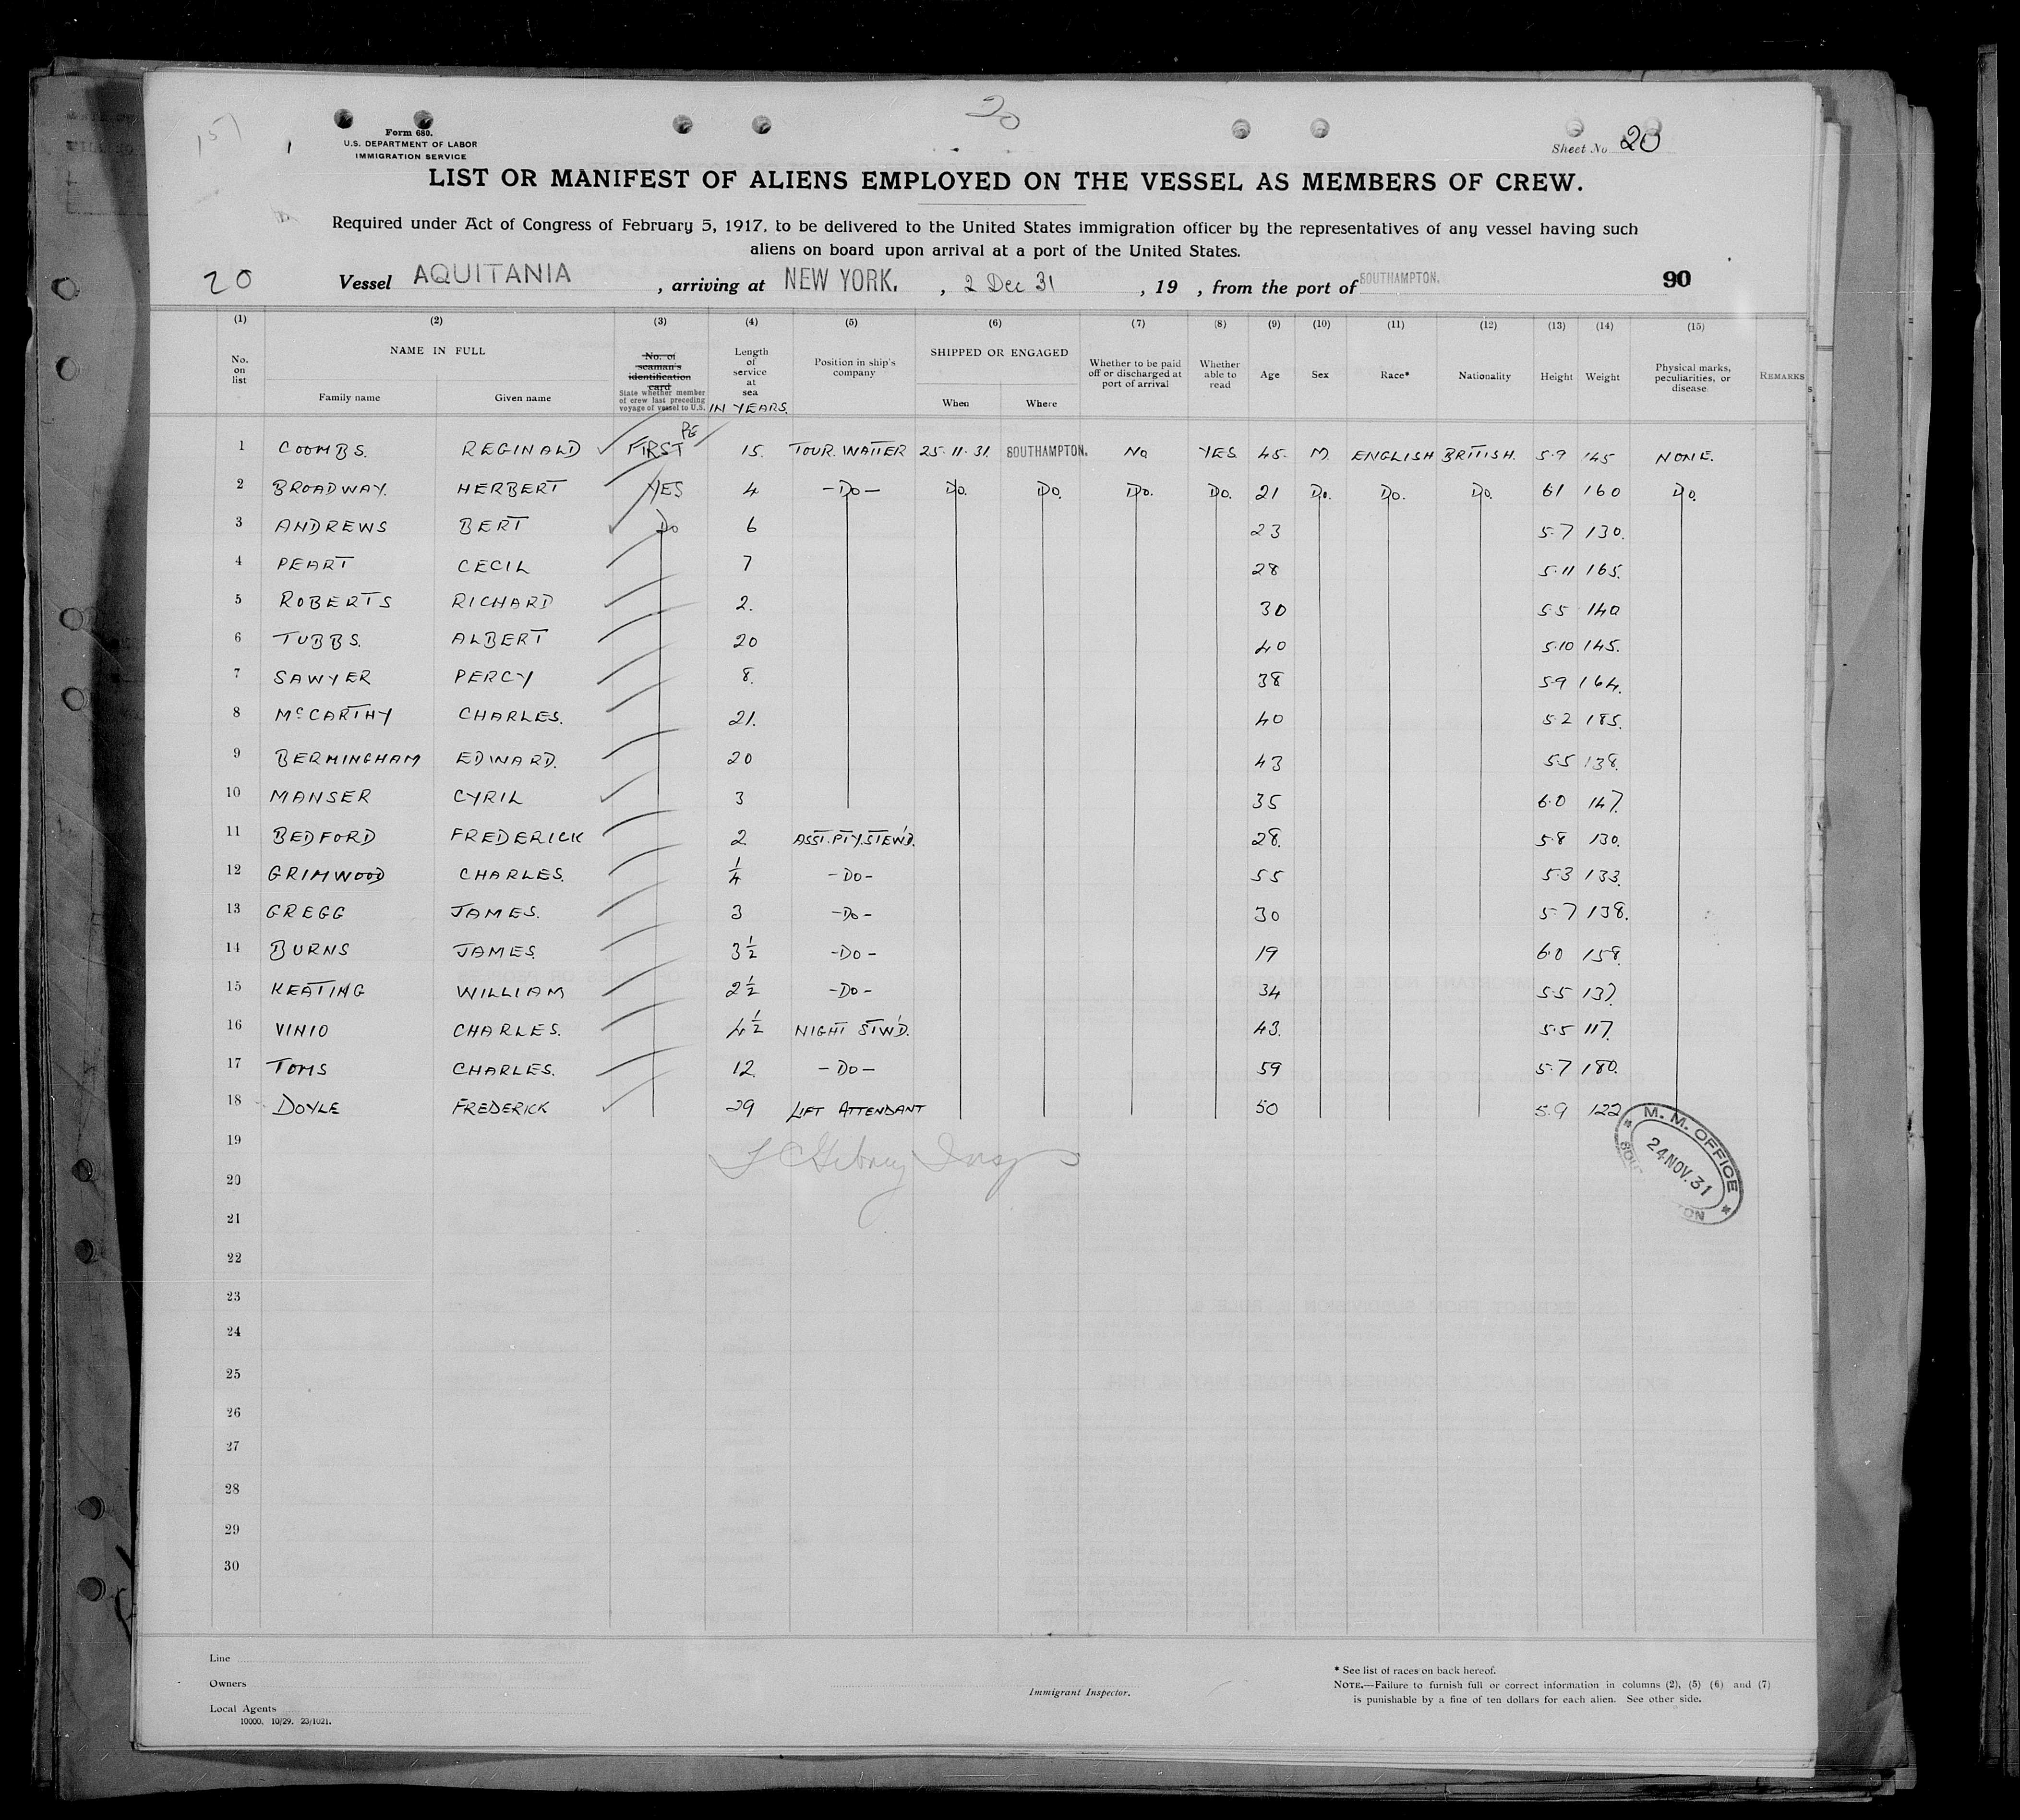 20
Form 680.
U.S. DEPARTMENT OF LABOR
IMMIGRATION SERVICE
Sheet No 20
LIST OR MANIFEST OF ALIENS EMPLOYED ON THE VESSEL AS MEMBERS OF CREW.
Required under Act of Congress of February 5, 1917, to be delivered to the United States immigration officer by the representatives of any vessel having such
aliens on board upon arrival at a port of the United States.
20 Vessel AQUITANIA, arriving at NEW YORK., 2 Dec 31, 19 , from the port of SOUTHAMPTON. 90
(1) (2) (3) (4) (5) (6) (7) (8) (9) (10) (11) (12) (13) (14) (15)
No. on list NAME IN FULL Family name Given name No. of seaman's identification card State whether member of crew last preceding voyage of vessel to U.S. Length of service at sea IN YEARS. Position in ship's company SHIPPED OR ENGAGED When Where Whether to be paid off or discharged at port of arrival Whether able to read Age Sex Race* Nationality Height Weight Physical marks, peculiarities, or disease REMARKS
1 COOMBS. REGINALD FIRST 15. TOUR. WAITER 25.11.31. SOUTHAMPTON. NO YES 45. M. ENGLISH BRITISH. 5.9 145 NONE.
2 BROADWAY. HERBERT YES 4 -DO- DO. DO. DO. DO. 21 DO. DO. DO. 61 160 DO.
3 ANDREWS BERT DO 6 23 5.7 130.
4 PEART CECIL 7 28 5.11 165.
5 ROBERTS RICHARD 2. 30 5.5 140
6 TUBBS. ALBERT 20 40 5.10 145.
7 SAWYER PERCY 8. 38 5.9 164.
8 McCARTHY CHARLES. 21. 40 5.2 185.
9 BERMINGHAM EDWARD. 20 43 5.5 138.
10 MANSER CYRIL 3 35 6.0 147.
11 BEDFORD FREDERICK 2 ASST. PTY. STEW'D. 28. 5.8 130.
12 GRIMWOOD CHARLES. 1/4 -DO- 55 5.3 133.
13 GREGG JAMES. 3 -DO- 30 5.7 138.
14 BURNS JAMES. 3 1/2 -DO- 19 6.0 158.
15 KEATING WILLIAM 2 1/2 -DO- 34 5.5 137.
16 VINIO CHARLES. 4 1/2 NIGHT STW'D. 43. 5.5 117.
17 TOMS CHARLES. 12. -DO- 59 5.7 180.
18 DOYLE FREDERICK 29 LIFT ATTENDANT 50 5.9 122
19
20
21
22
23
24
25
26
27
28
29
30
M. M. OFFICE
24 NOV. 31
Line
Owners
Local Agents
10000. 10/29. 23/1021.
Immigrant Inspector.
* See list of races on back hereof.
NOTE.—Failure to furnish full or correct information in columns (2), (5) (6) and (7)
is punishable by a fine of ten dollars for each alien. See other side.